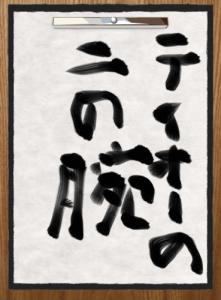 ティオーの
二の腕